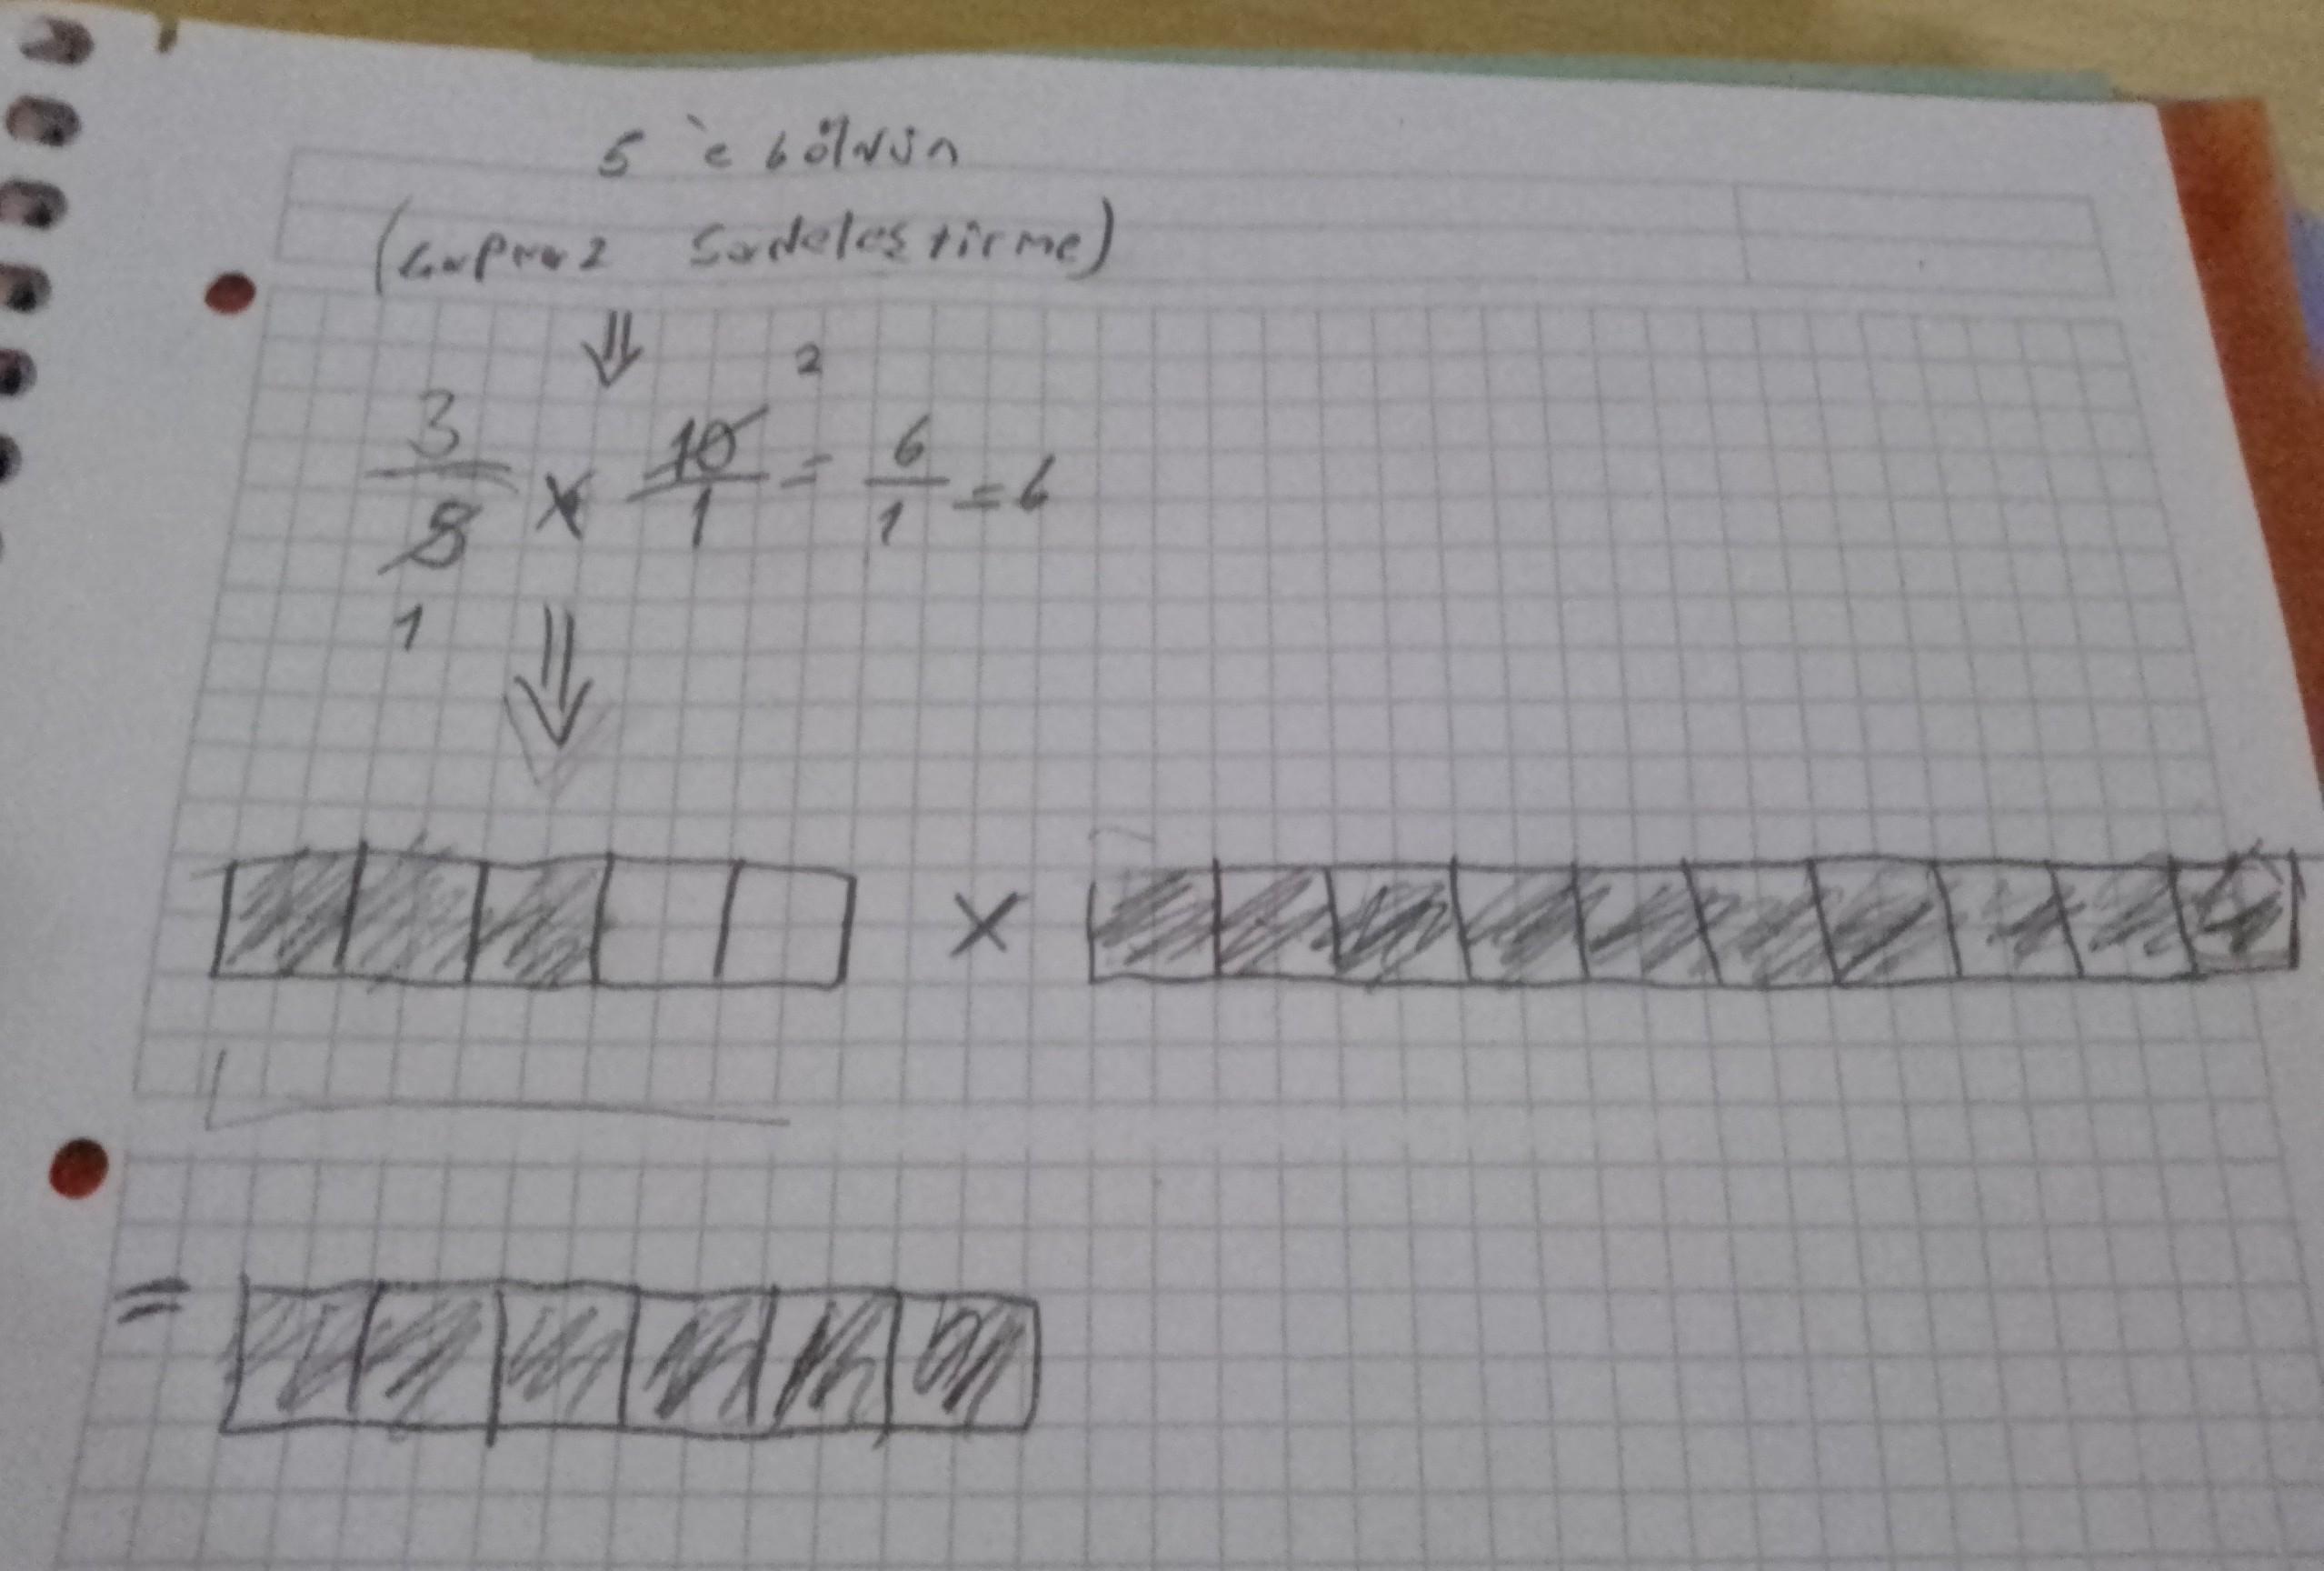 5'e böldün
(Çapraz Sadeleştirme)
2
3/5 x 10/1 = 6/1 = 6
1
x
=